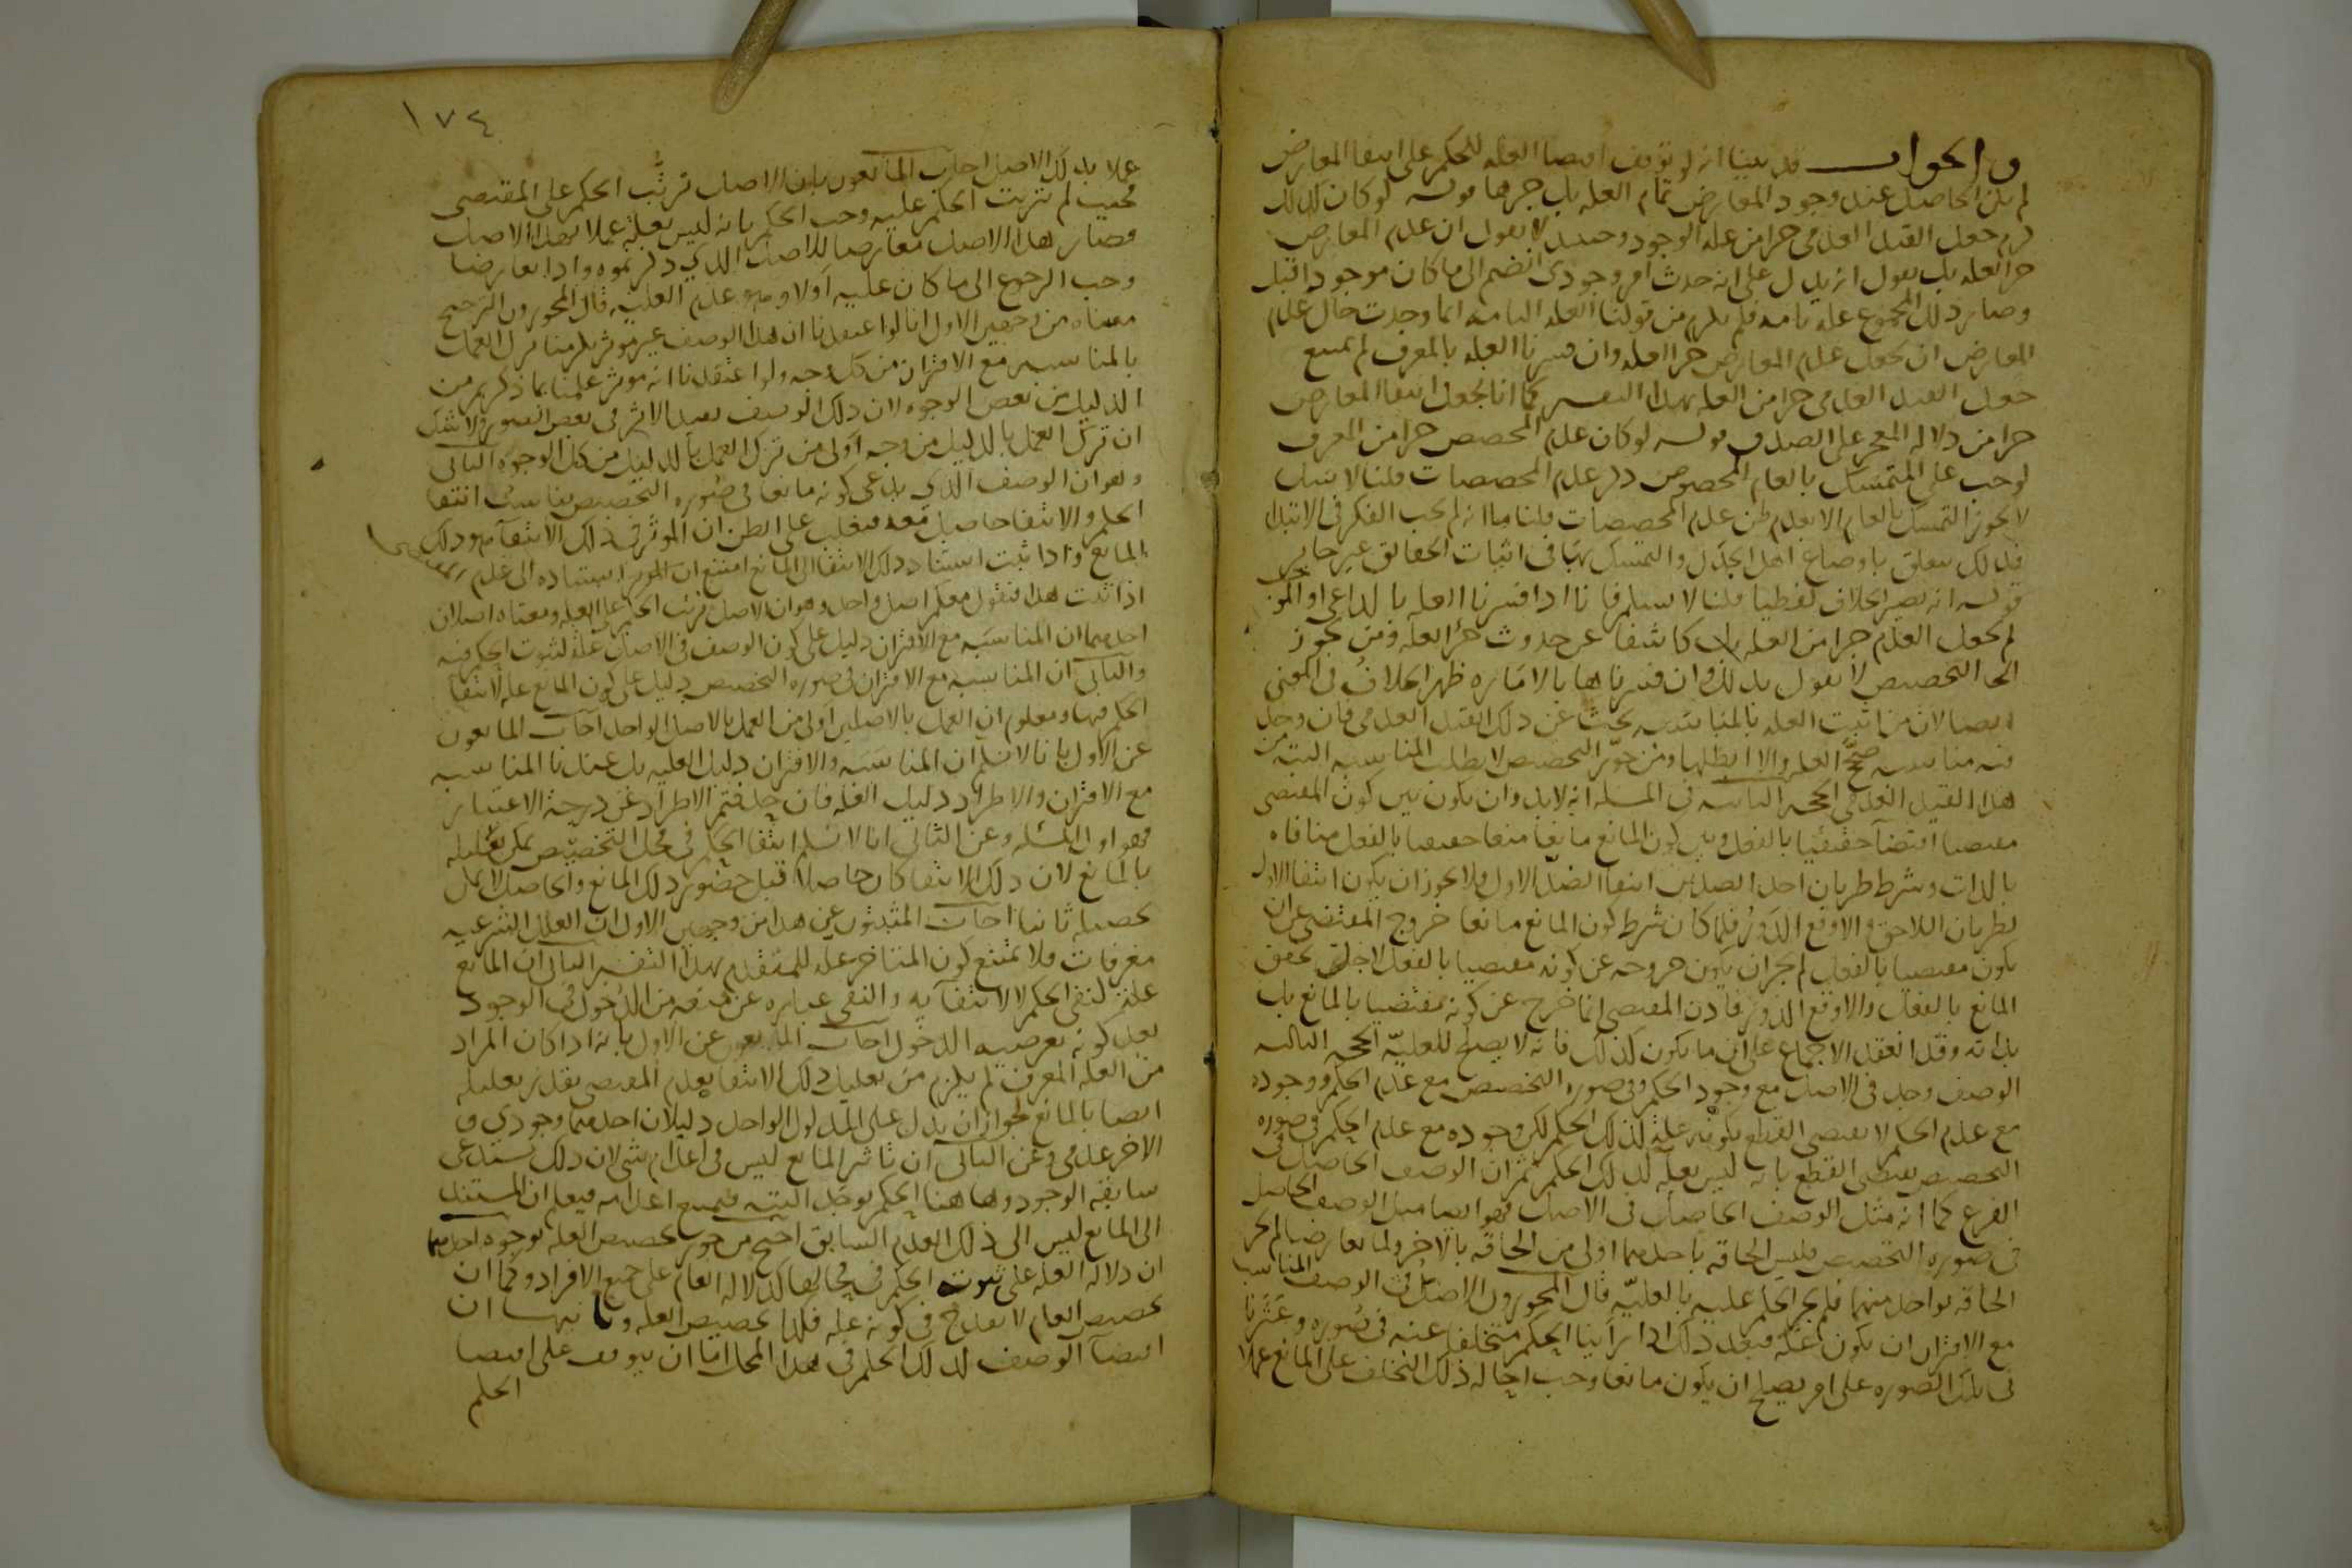 والجواب قد بينا انه لو توقف اقتضا العله للحكم على انتفا المعارض
لم يكن الحاصل عند وجود المعارض تمام العله بل جزها قوله لو كان كذلك
لزم جعل القيد العدمى جزا من علة الوجود وحينيذ لا نقول ان عدم المعارض
جزالعله بل نقول انه يدل على انه حدث امر وجودى انضم الى ما كان موجودا قبل
وصار ذلك المجموع عله تامه فلم يلزم من قولنا العله التامه انما وجدت حال عدم
المعارض ان نجعل عدم المعارض جزا العله وان فسرنا العله بالمعرف لم يمتنع
جعل القيد العدمى جزا من العله بهذا التفسير كما انا نجعل انتفا المعارض
جزا من دلاله المعجز على الصدق قوله لو كان عدم المخصص جزا من المعرف
لوجب على المتمسك بالعام المخصوص ذكر عدم المخصصات قلنا لا شك
لا يجوز التمسك بالعام الا بعد ظن عدم المخصصات قلنا اما انه لم يجب الفكر فى الابتدا
فذلك يتعلق باوضاع اهل الجدل والتمسك بها فى اثبات الحقائق غير جايز
قوله انه يصير الخلاف لفظيا قلنا لا نسلم فانا اذا فسرنا العله بالداعى او الموجب
لم نجعل العدم جزا من العله بل كاشفا عن حدوث جزالعله ومن يجوز
التخصيص لا يقول بذلك وان فسرناها بالاماره ظهر الخلاف فى المعنى
ايضا لان من اثبت العله بالمناسبه بحث عن ذلك القيد العدمى فان وجد
فيه مناسبه صحح العله والا ابطلها ومن جوز التخصيص لا يطلب المناسبه البته من
هذا القيد العدمى الحجه الثانيه فى المسله انه لابد وان يكون بين كون المقتضى
مقتضيا اقتضآ حقيقيا بالفعل وبين كون المانع مانعا منعا حقيقيا بالفعل منافاه
بالذات وشرط طريان احد الضدين انتفا الضد الاول ولا يجوز ان يكون انتفا الاول
لطريان اللاحق والا وقع الدور فلما كان شرط كون المانع مانعا خروج المقتضى عن ان
يكون مقتضيا بالفعل لم يجز ان يكون خروجه عن كونه مقتضيا بالفعل لاجل تحقق
المانع بالفعل والا وقع الدور فاذن المقتضى انما خرج عن كونه مقتضيا بالمانع بل
بذاته وقد انعقد الاجماع على ان ما يكون كذلك فانه لا يصلح للعليّه الحجه الثالثه
الوصف وجد فى الاصل مع وجود الحكم وفى صوره التخصيص مع عدم الحكم ووجوده
مع عدم الحكم لا يقتضى القطع بكونه علة لذلك الحكم لكن وجوده مع عدم الحكم فى صوره
التخصيص يقتضى القطع بانه ليس بعلة لذلك الحكم ثم ان الوصف الحاصل فى
الفرع كما انه مثل الوصف الحاصل فى الاصل فهو ايضا مثل الوصف الحاصل
فى صوره التخصيص فليس الحاقه باحدهما اولى من الحاقه بالاخر ولما تعارضا لم يجز
الحاقه بواحد منهما فلم يجز الحكم عليه بالعليّه قال المجوزون الاصل فى الوصف المناسب
مع الاقتران ان يكون علة فبعد ذلك اذا رأينا الحكم متخلفا عنه فى صوره وعثرنا
فى تلك الصوره على امر يصلح ان يكون مانعا وجب احاله ذلك التخلف على المانع عملا
١٧٤
عملا بذلك الاصل اجاب المانعون بان الاصل ترتُّب الحكم على المقتضى
فحيث لم يترتب الحكم عليه وجب الحكم بانه ليس بعلة عملا بهذا الاصل
فصار هذا الاصل معارضا للاصل الذى ذكرتموه واذا تعارضا
وجب الرجوع الى ما كان عليه اولا وهو عدم العليه قال المجوزون الترجيح
معناه من وجهين الاول انا لو اعتقدنا ان هذا الوصف غير موثر يلزمنا ترك العمل
بالمناسبه مع الاقتران من كل وجه ولو اعتقدنا انه موثر علمنا بما ذكرتم من
الدليل من بعض الوجوه لان ذلك الوصف يفيد الاثر فى بعض الصور ولا شك
ان ترك العمل بالدليل من وجه اولى من ترك العمل بالدليل من كل الوجوه الثانى
وهو ان الوصف الذى يدعى كونه مانعا فى صوره التخصيص يناسب انتفا
الحكم والانتفا حاصل معه فيغلب على الظن ان الموثر فى ذلك الانتفآ هو ذلك
المانع واذا ثبت استناد ذلك الانتفا الى المانع امتنع استناده الى عدم المقتضى
اذا ثبت هذا فنقول معكم اصل واحد وهو ان الاصل ترتب الحكم على العله ومعنا اصلان
احدهما ان المناسبه مع الاقتران دليل على كون الوصف فى الاصل علة لثبوت الحكم فيه
والثانى ان المناسبه مع الاقتران فى صوره التخصيص دليل على كون المانع علة لانتفا
الحكم فيها ومعلوم ان العمل بالاصلين اولى من العمل بالاصل الواحد اجاب المانعون
عن الاول بانا لا نسلم ان المناسبه والاقتران دليل العليه بل عندنا المناسبه
مع الاقتران والاطراد دليل العله فان حذفتم الاطراد عن درجة الاعتبار
فهو اول المسئله وعن الثانى انا لا نسلم انتفا الحكم فى محل التخصيص يمكن تعليله
بالمانع لان ذلك الانتفا كان حاصلا قبل حضور ذلك المانع والحاصل لا يمكن
تحصيله ثانيا اجاب المثبتون عن هذا من وجهين الاول ان العلل الشرعيه
معرفات فلا يمتنع كون المتاخر علة للمتقدم بهذا التفسير الثانى ان المانع
علة لنفى الحكم لا لانتفآيه والنفى عباره عن منعه من الدخول فى الوجود
بعد كونه بعرضيه الدخول اجاب المانعون عن الاول بانه اذا كان المراد
من العله المعرف لم يلزم من تعليل ذلك الانتفا بعدم المقتضى تعذر تعليله
ايضا بالمانع لجواز ان يدل على المدلول الواحد دليلان احدهما وجودى و
الاخر عدمى وعن الثانى ان تاثير المانع ليس فى اعدام شى لان ذلك يستدعى
سابقه الوجود وهاهنا الحكم لم يوجد البته فيمتنع اعدامه فيعلم ان المستند
الى المانع ليس الا ذلك العدم السابق احتج من جوز تخصيص العله بوجوه احدها
ان دلاله العله على ثبوت الحكم فى محالها كدلاله العام على جميع الافراد وكما ان
تخصيص العام لا يقدح فى كونه علة فكذا تخصيص العله وثانيها ان
اقتضآ الوصف لذلك الحكم فى هذا المحل اما ان يتوقف على اقتضا
الحكم